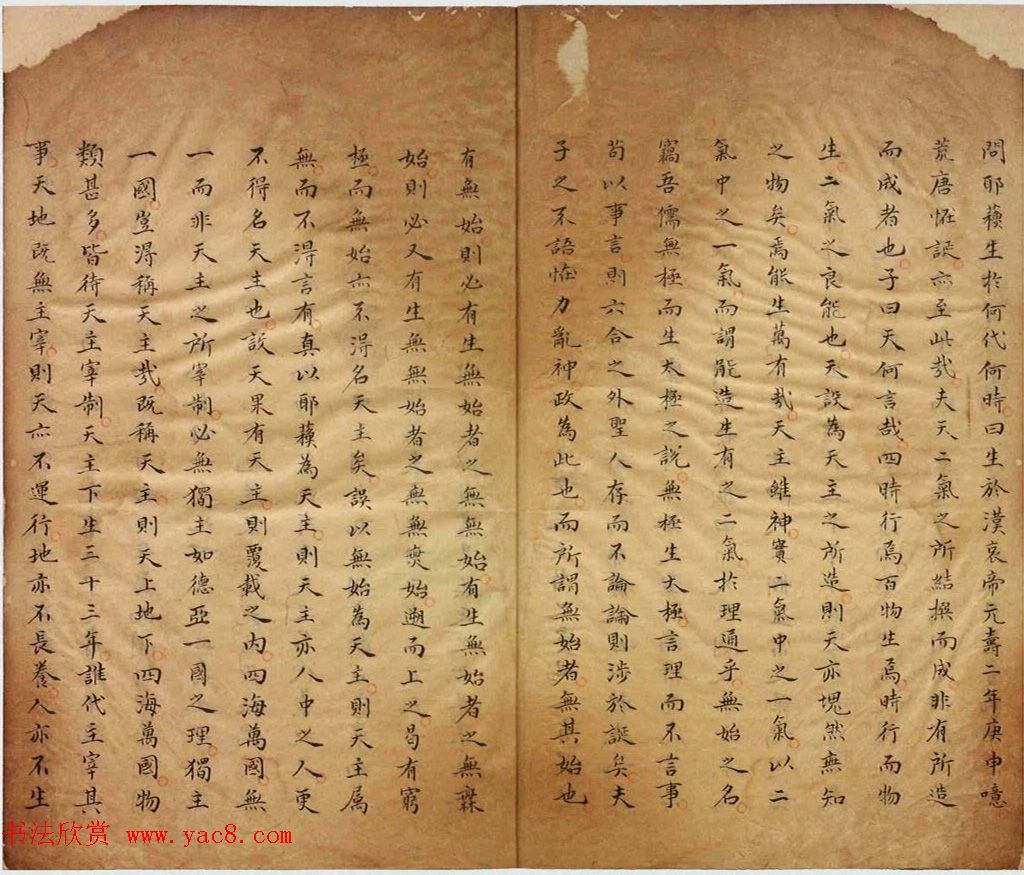 問耶穌生於何代何時曰生於漢哀帝元壽二年庚申噫
荒唐怪誕亦至此哉夫天二氣之所結撰而成非有所造
而成者也子曰天何言哉四時行焉百物生焉時行而物
生二氣之良能也天設為天主之所造則天亦塊然無知
之物矣焉能生萬有哉天主雖神實二氣中之一氣以二
氣中之一氣而謂能造生有之二氣於理通乎無始之名
竊吾儒無極而生太極之說無極生太極言理而不言事
苟以事言則六合之外聖人存而不論論則涉於誕矣夫
子之不語怪力亂神政為此也而所謂無始者無其始也
有無始則必有生無始者之無無始有生無始者之無無
始則必又有生無無始者之無無㷼始遡而上之曷有窮
極而無始亦不得名天主矣誤以無始為天主則天主属
無而不得言有真以耶穌為天主則天主亦人中之人更
不得名天主也設天果有天主則覆載之内四海萬國無
一而非天主之所宰制必無獨主如德亞一國之理獨主
一國豈得稱天主哉既稱天主則天上地下四海萬國物
類甚多皆待天主宰制天主下生三十三年誰代主宰其
事天地既無主宰則天亦不運行地亦不長養人亦不生
书法欣赏 www.yac8.com